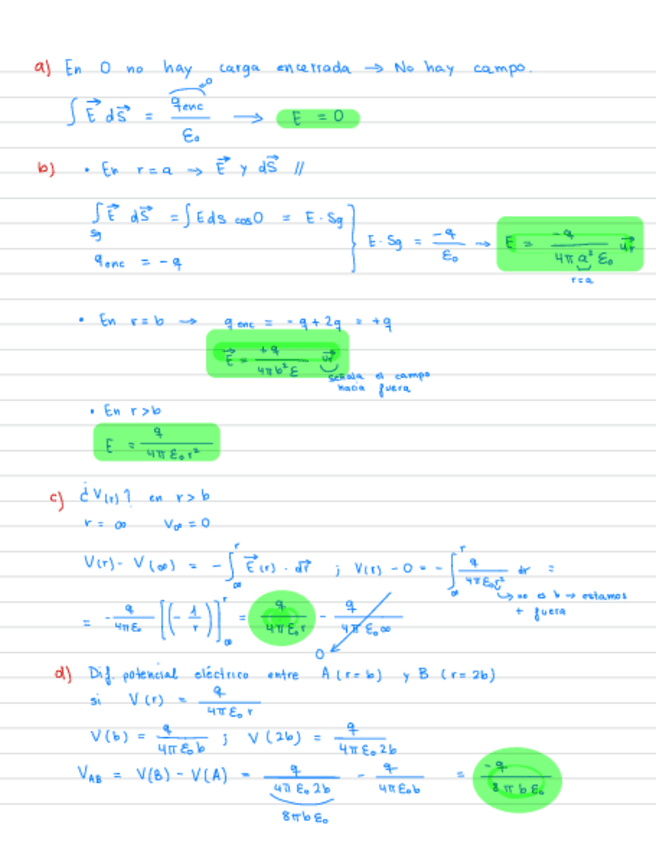 a) En O no hay carga encerrada → No hay campo.
∫ E⃗ dS⃗ = qenc / ε₀ → E = 0
0
b) • En r=a → E⃗ y dS⃗ //
∫ E⃗ dS⃗ = ∫ E ds cos0 = E · Sg
Sg
qenc = -q
E · Sg = -q / ε₀ → E = -q / 4π a² ε₀ u⃗r
r=a
• En r=b → qenc = -q + 2q = +q
E⃗ = +q / 4πb²ε u⃗r
señala el campo
hacia fuera
• En r>b
E = q / 4π ε₀ r²
c) ¿V(r)? en r>b
r = ∞ V∞ = 0
V(r) - V(∞) = - ∫∞^r E⃗(r) · dr⃗ ; V(r) - 0 = - ∫∞^r q / 4πε₀r² dr =
→ no es b → estamos
+ fuera
= - q / 4πε₀ [(- 1 / r)]∞^r = q / 4πε₀r - q / 4πε₀∞
0
d) Dif. potencial eléctrico entre A (r=b) y B (r=2b)
si V(r) = q / 4πε₀ r
V(b) = q / 4πε₀b ; V(2b) = q / 4πε₀2b
VAB = V(B) - V(A) = q / 4πε₀2b - q / 4πε₀b = -q / 8πbε₀
8πbε₀